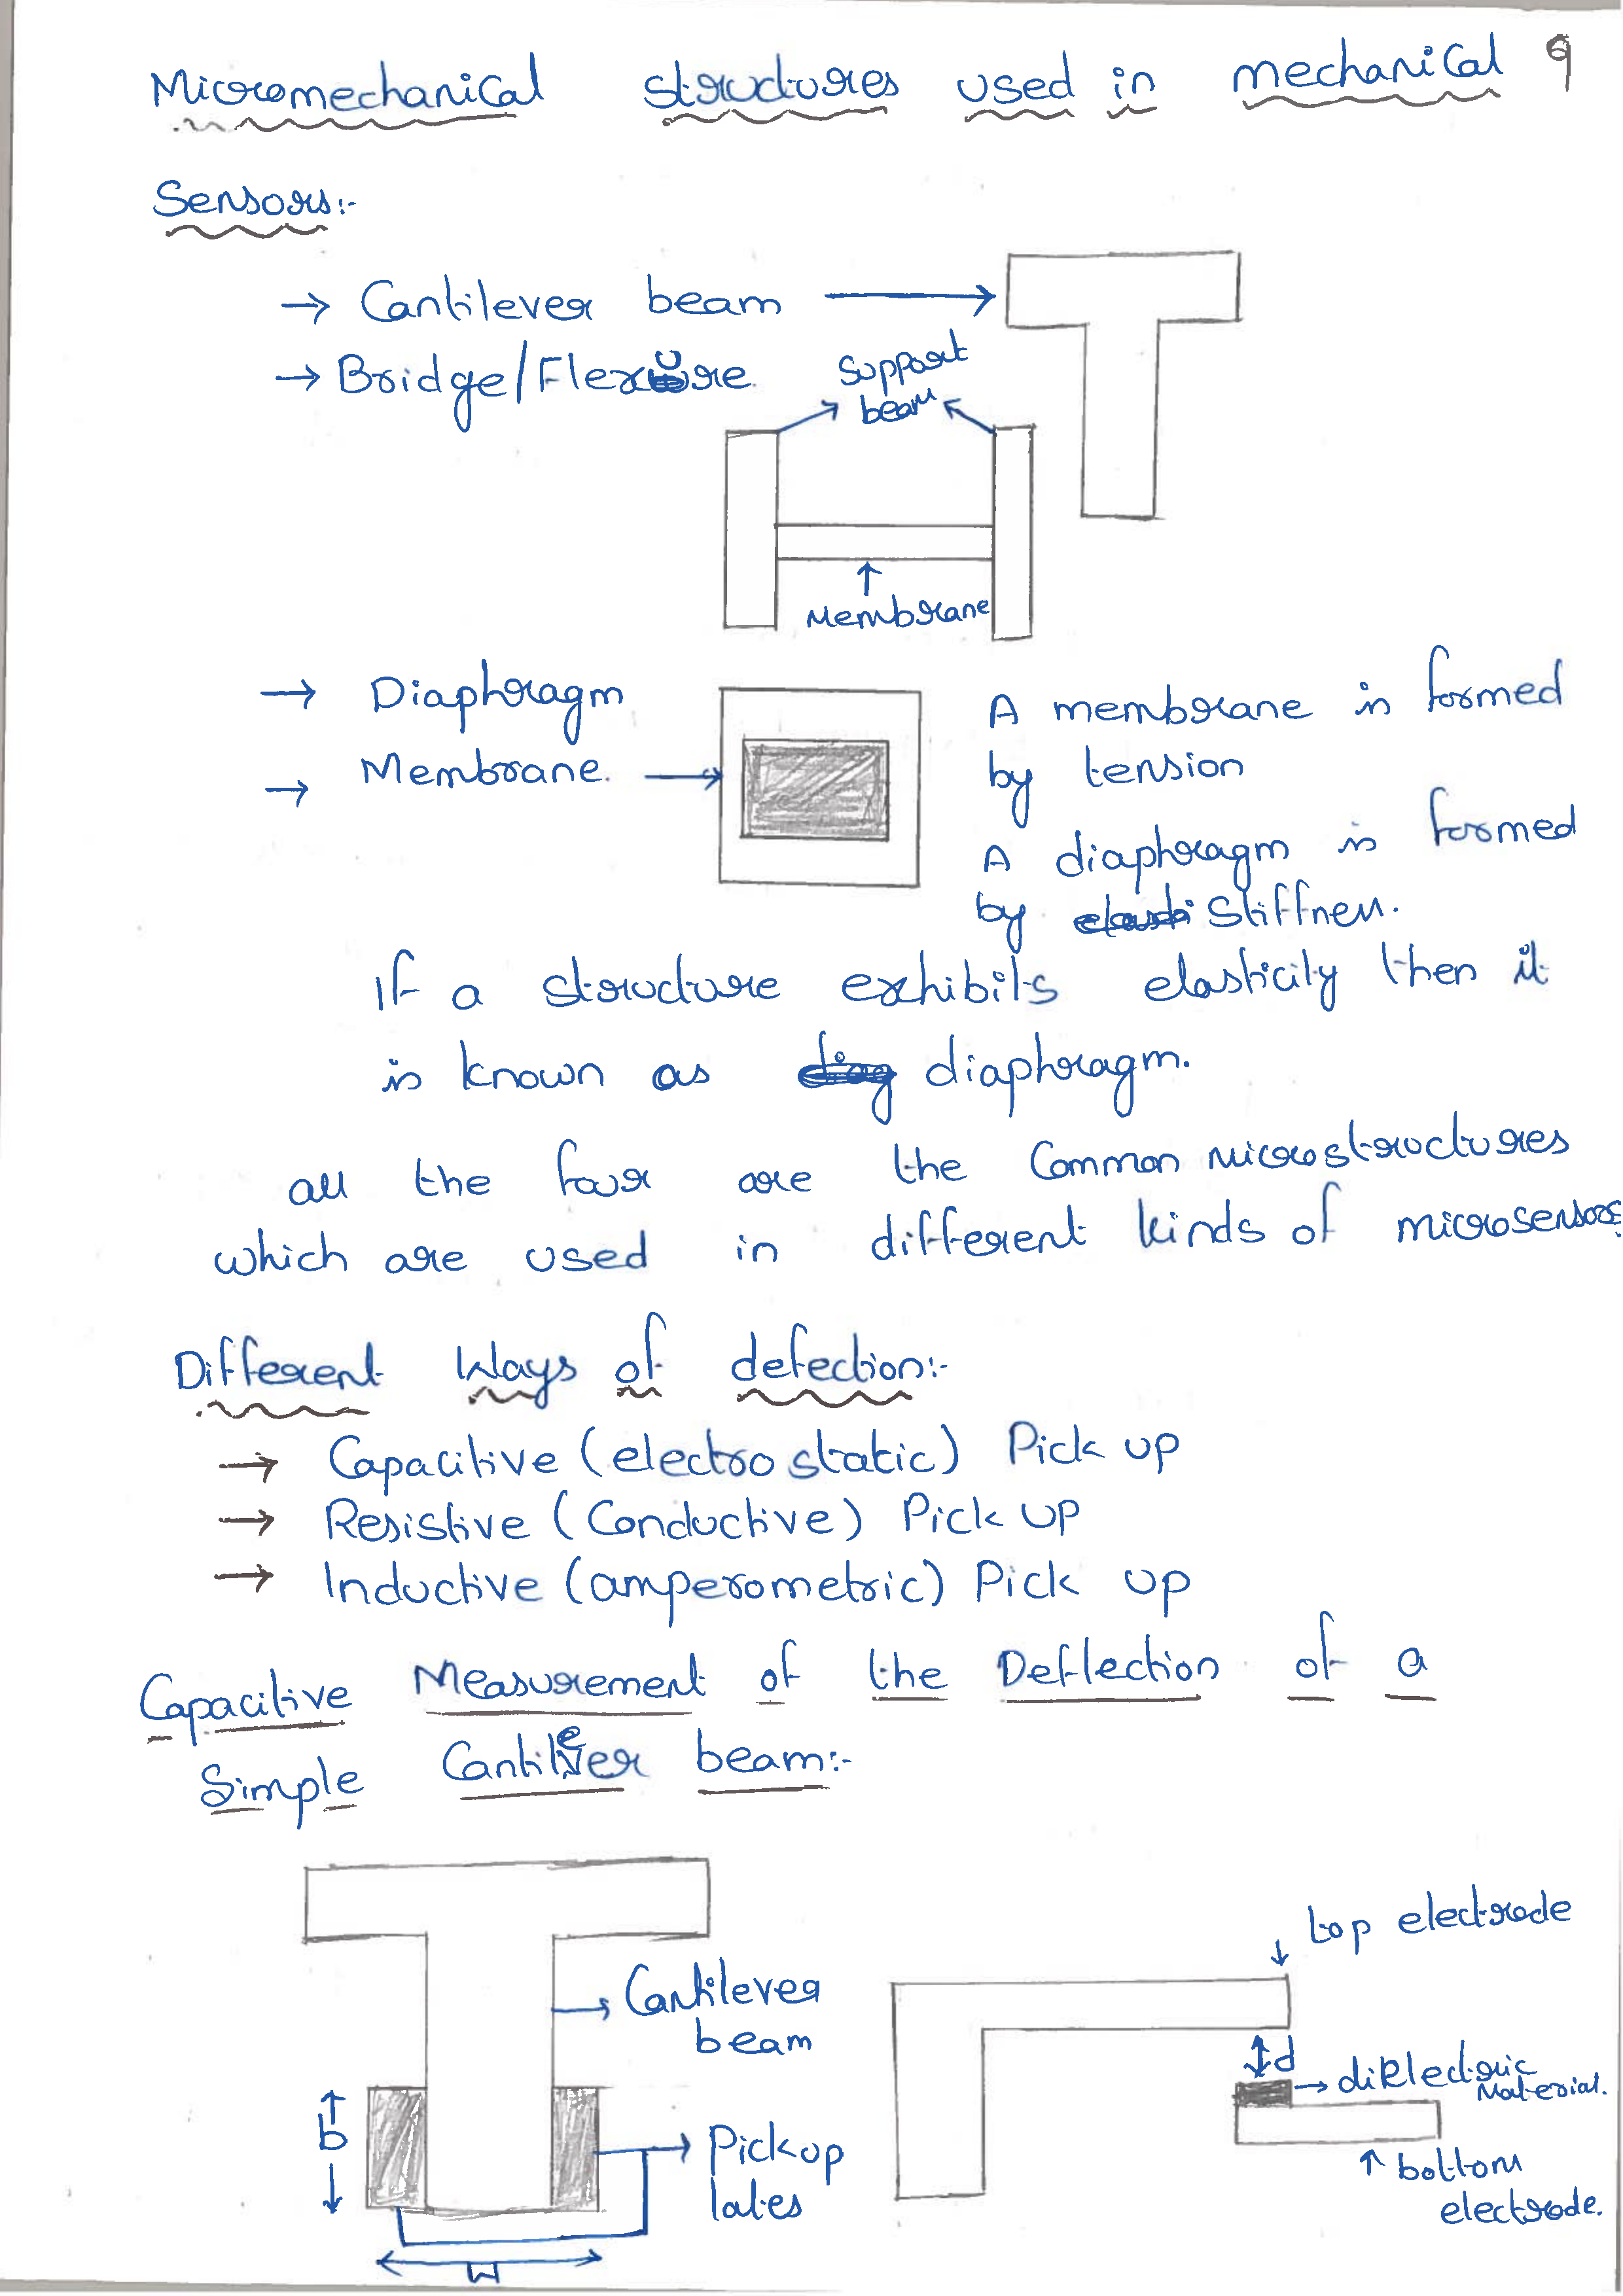 Micromechanical structures used in mechanical 9
Sensors:-
→ Cantilever beam →
→ Bridge/Flexure.
Support
beam
Membrane
→ Diaphragm
→ Membrane. →
A membrane is formed
by tension
A diaphragm is formed
by elasti stiffness.
If a structure exhibits elasticity then it
is known as diag diaphragm.
all the four are the Common microstructures
which are used in different kinds of microsensors
Different Ways of defection:-
→ Capacitive (electrostatic) Pick up
→ Resistive (Conductive) Pick up
→ Inductive (amperometric) Pick up
Capacitive Measurement of the Deflection of a
Simple Cantilever beam:-
top electrode
→ Cantilever
beam
d
→ dielectric
Material.
b
→ Pickup
lates
bottom
electrode.
W